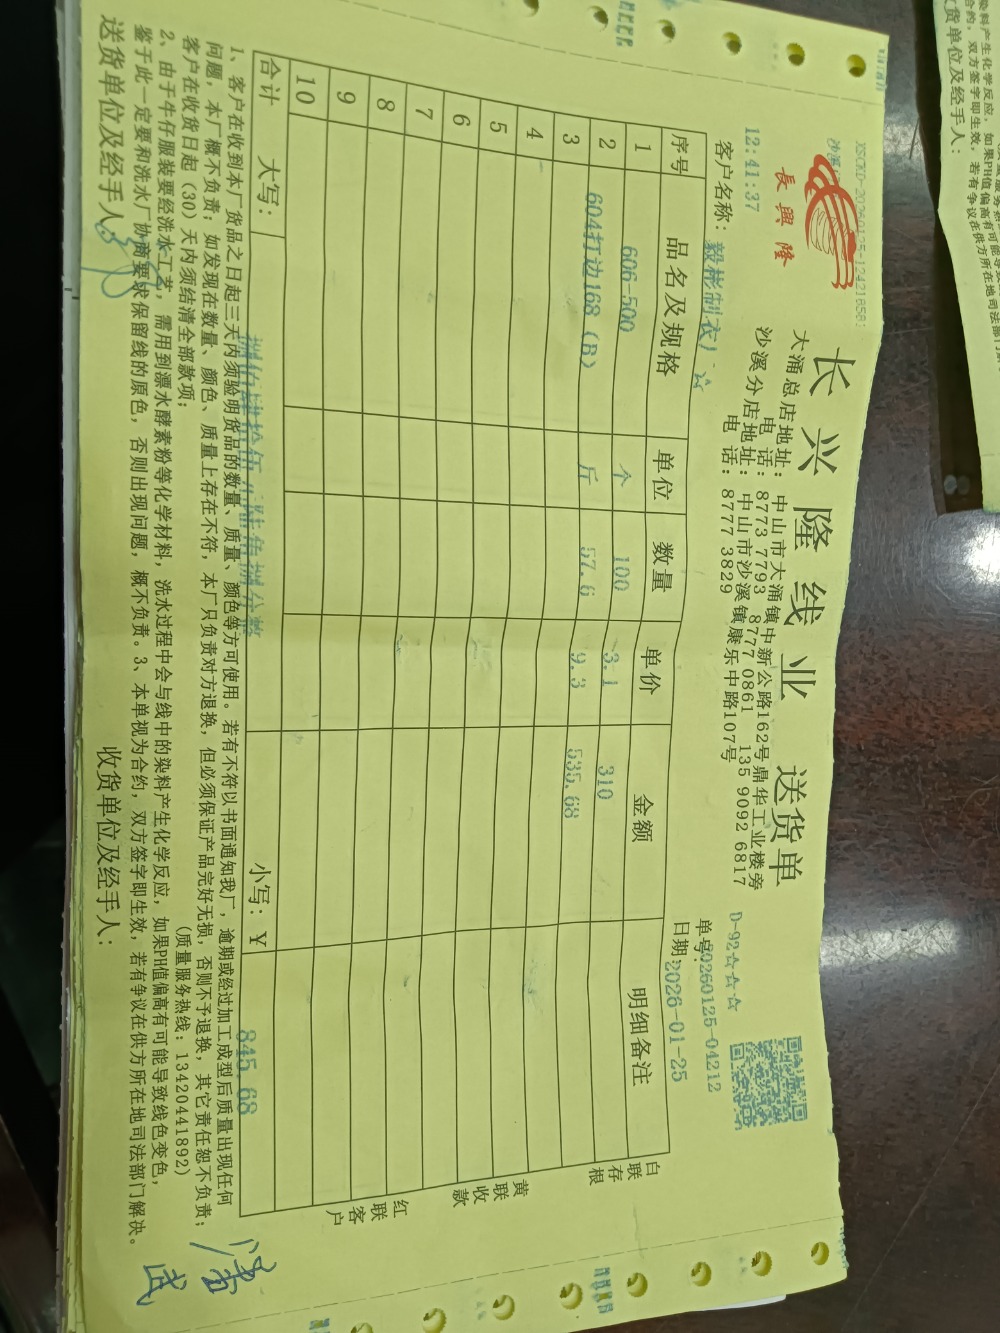 长兴隆线业 送货单
長興隆
大涌总店地址: 中山市大涌镇中新公路162号鼎华工业楼旁
电 话: 8773 7793 8777 0861 135 9092 6817
沙溪分店地址: 中山市沙溪镇康乐中路107号
电 话: 8777 3829
D-92☆☆☆
单号:20260125-04212
12:41:37
客户名称: 毅彬制衣厂☆
日期:2026-01-25
序号 品名及规格 单位 数量 单价 金额 明细备注
1 606-500 个 100 3.1 310
2 604打边168(B) 斤 57.6 9.3 535.68
3
4
5
6
7
8
9
10
合计 大写: 捌佰肆拾伍元陆角捌分整 小写: ¥ 845.68
白联存根
黄联收款
红联客户
1、客户在收到本厂货品之日起三天内须验明货品的数量、质量、颜色等方可使用。若有不符以书面通知我厂,逾期或经过加工成型后质量出现任何
问题,本厂概不负责;如发现在数量、颜色、质量上存在不符,本厂只负责对方退换,但必须保证产品完好无损,否则不予退换,其它责任恕不负责;
客户在收货日起(30)天内须结清全部款项;
(质量服务热线:13420441892)
2、由于牛仔服装要经洗水工艺,需用到漂水酵素粉等化学材料,洗水过程中会与线中的染料产生化学反应,如果PH值偏高有可能导致线色变色,
鉴于此一定要和洗水厂协商要求保留线的原色,否则出现问题,概不负责。3、本单视为合约,双方签字即生效,若有争议在供方所在地司法部门解决。
送货单位及经手人:
收货单位及经手人:
染料产生化学反应,如果PH值偏高有可能导
合约,双方签字即生效,若有争议在供方所在地司法部门
收货单位及经手人: